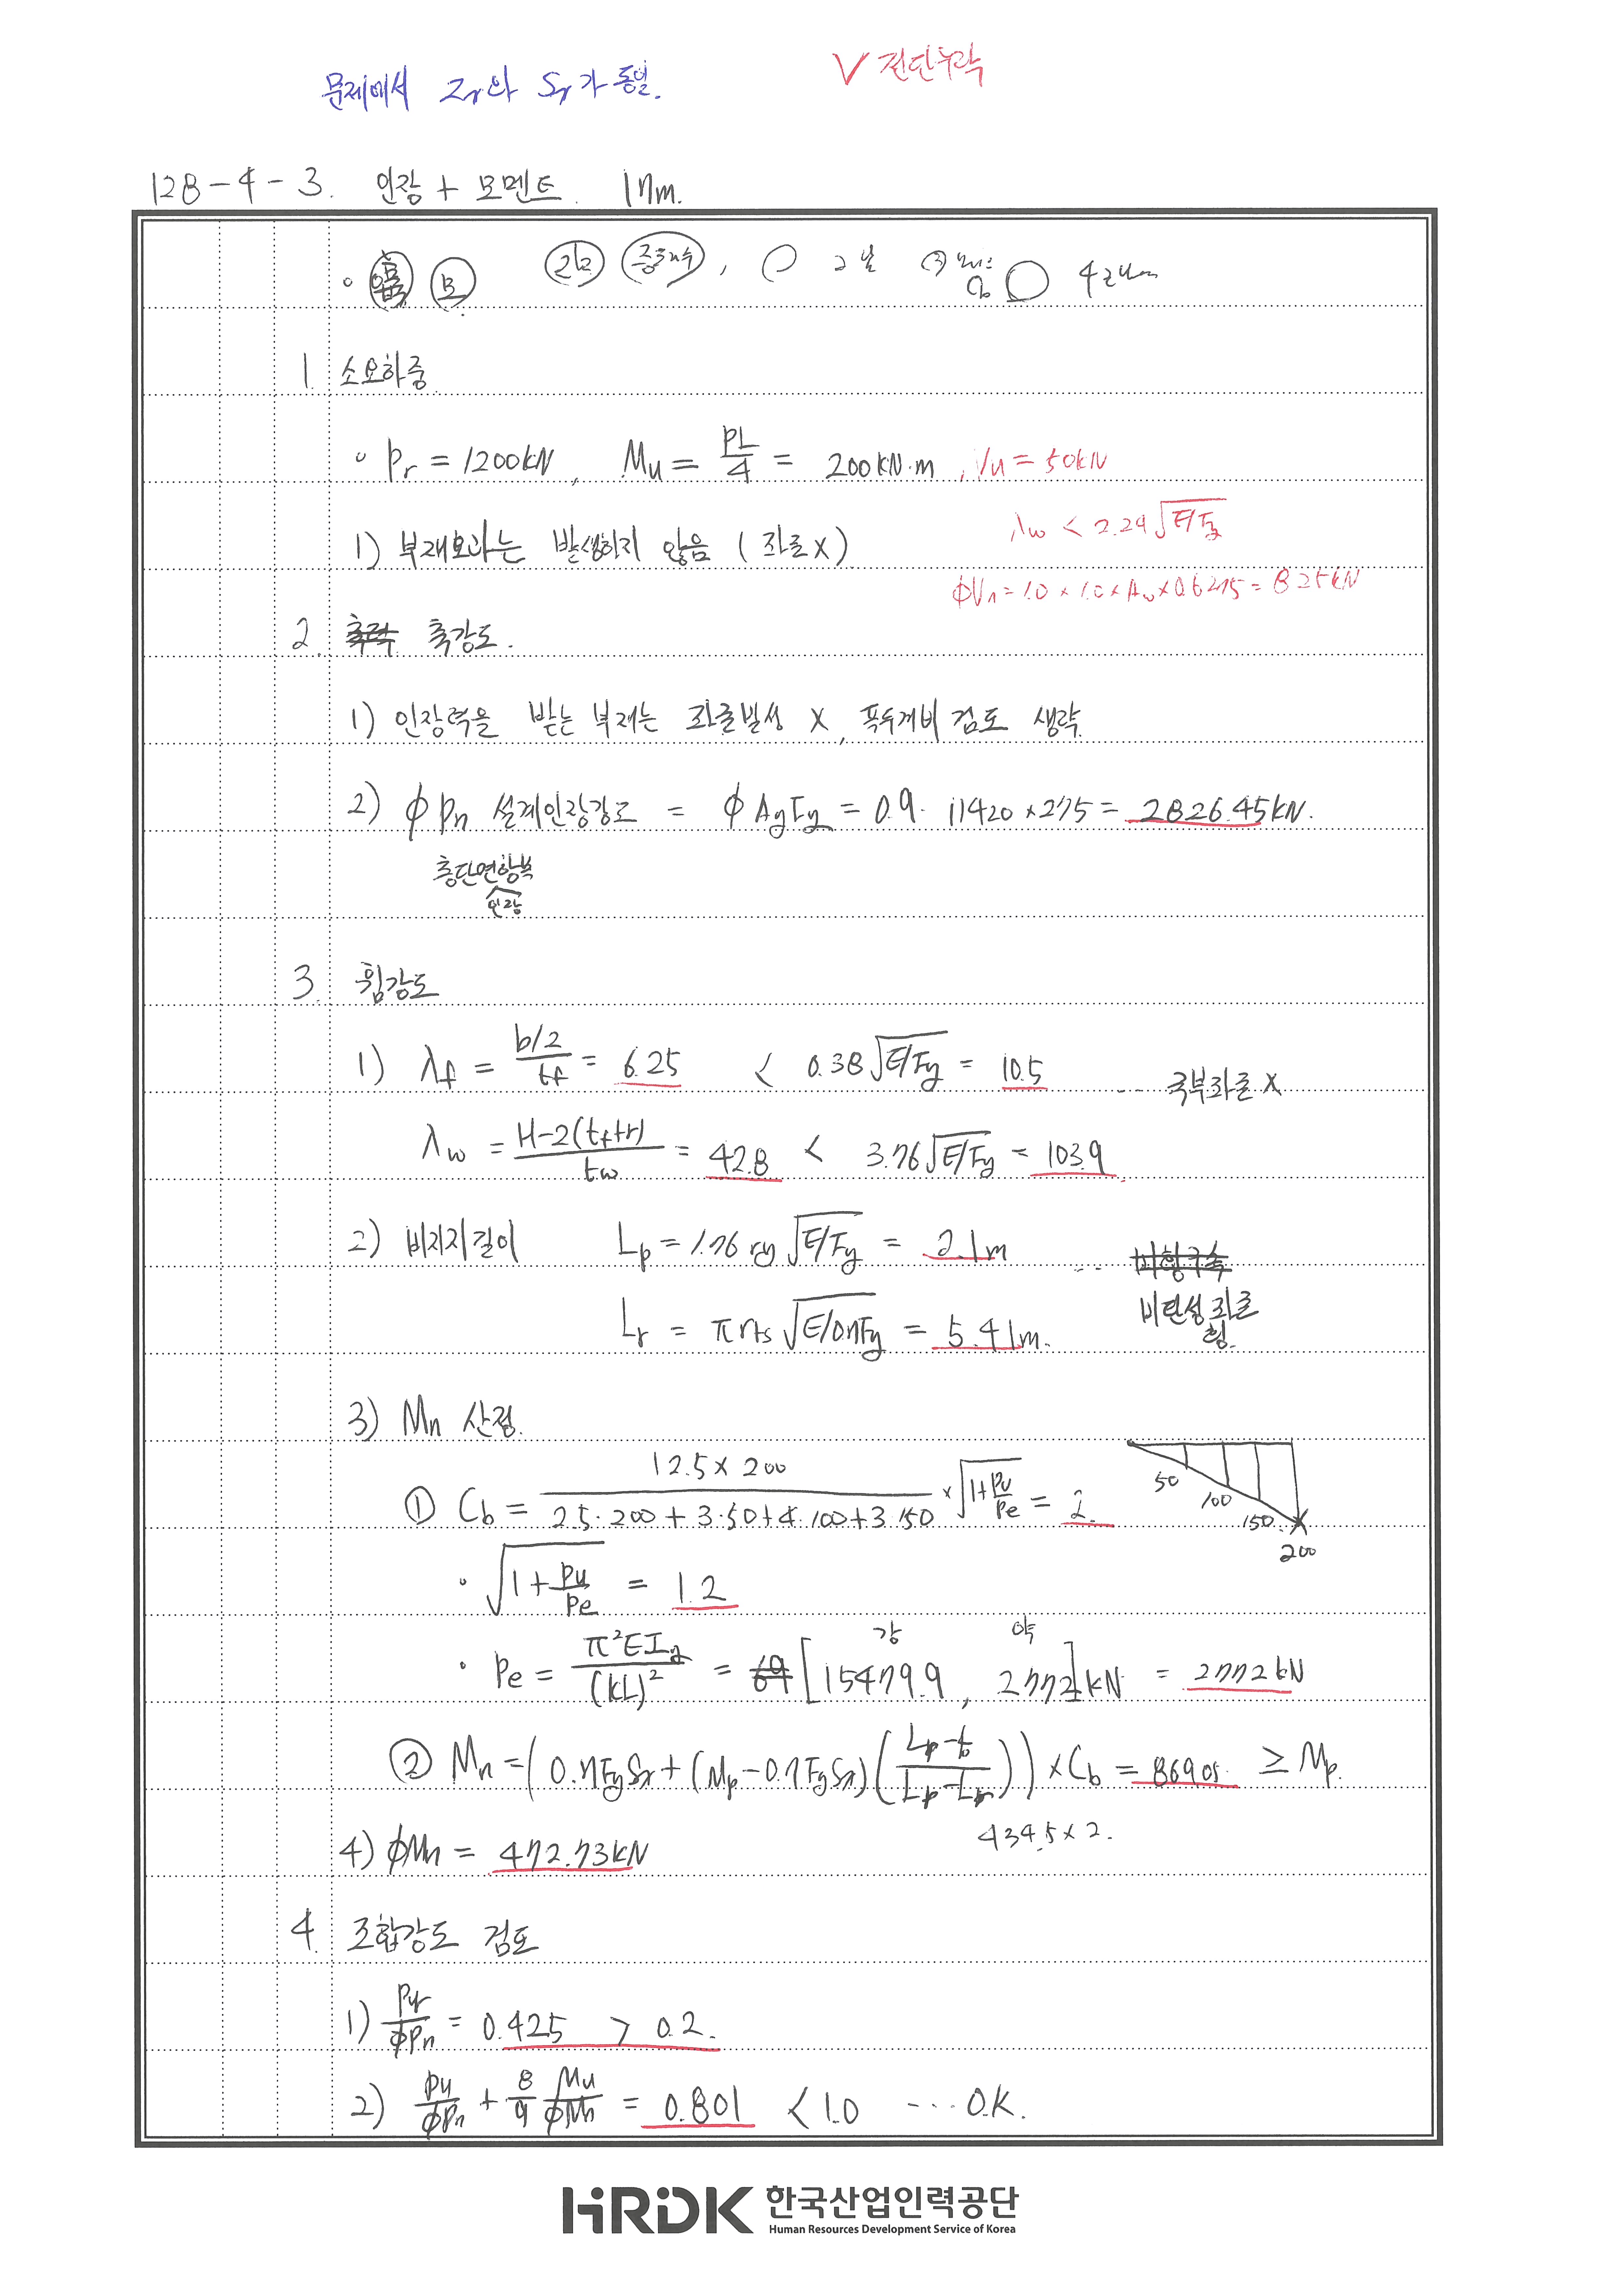 문제에서 Zx와 Sx가 동일.
V 전단누락
128-4-3. 인장 + 모멘트. 17m.
1. 소요하중
◦ Pr = 1200kN, Mu = PL/4 = 200kN·m, Vu = 50kN
λw < 2.24√E/Fy
1) 부재효과는 발생하지 않음 (좌굴X)
ϕVn = 1.0 × 1.0 × Aw × 0.6 275 = 825kN
2. 축강도.
1) 인장력을 받는 부재는 좌굴발생 X, 폭두께비 검토 생략
2) ϕPn 설계인장강도 = ϕAgFy = 0.9· 11420 × 275 = 2826.45kN.
총단면항복
인장
3. 휨강도
1) λf = (b/2)/tf = 6.25 < 0.38√E/Fy = 10.5 ... 국부좌굴 X
λw = (H-2(tf+r))/tw = 42.8 < 3.76√E/Fy = 103.9
2) 비지지길이 Lp = 1.76 ry √E/Fy = 2.1m
비탄성 좌굴
휨.
Lr = π rts √E/0.7Fy = 5.41m.
3) Mn 산정.
① Cb = (12.5 × 200)/(2.5·200 + 3·50 + 4·100 + 3·150) × √1+Pu/Pe = 2.
50 100 150 200
· √1+Pu/Pe = 1.2
강 약
· Pe = π²EIy/(KL)² = [15479.9, 2772] kN = 2772kN
② Mn = (0.7FySx + (Mp - 0.7FySx)((Lp-Lb)/(Lp-Lr))) × Cb = 869.05 ≥ Mp.
434.5 × 2.
4) ϕMn = 472.73kN
4. 조합강도 검토
1) Pr/ϕPn = 0.425 > 0.2.
2) Pu/ϕPn + 8/9 Mu/ϕMn = 0.801 < 1.0 ... O.K.
HRDK 한국산업인력공단
Human Resources Development Service of Korea